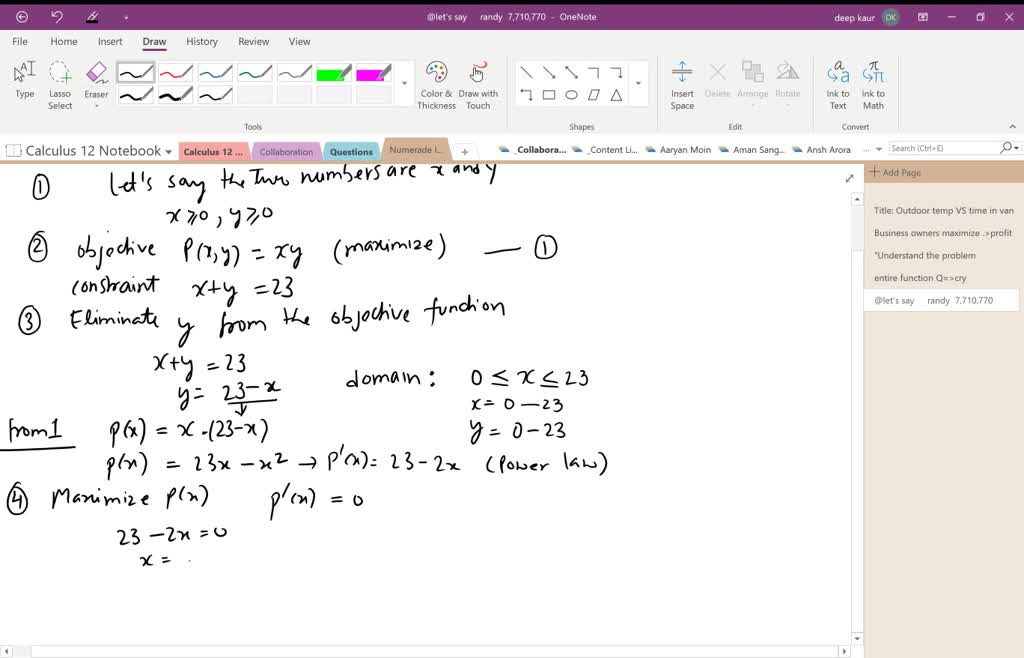 @let's say randy 7,710,770 - OneNote
deep kaur DK
File Home Insert Draw History Review View
Type
Lasso Select
Eraser
Color & Thickness
Draw with Touch
Insert Space
Delete
Arrange
Rotate
Ink to Text
Ink to Math
Tools Shapes Edit Convert
Calculus 12 Notebook Calculus 12 ... Collaboration Questions Numerade I... + _Collabora... _Content Li... Aaryan Moin Aman Sang... Ansh Arora ... Search (Ctrl+E)
① let's say the two numbers are x and y
x ≥ 0, y ≥ 0
② objective P(x,y) = xy (maximize) — ①
constraint x+y = 23
③ Eliminate y from the objective function
x+y = 23
y = 23-x
domain: 0 ≤ x ≤ 23
x = 0 - 23
y = 0 - 23
from 1 p(x) = x·(23-x)
p(x) = 23x - x² → p'(x) = 23-2x (Power law)
④ Maximize p(x) p'(x) = 0
23 - 2x = 0
x =
Add Page
Title: Outdoor temp VS time in van
Business owners maximize .>profit
"Understand the problem
entire function Q=>cry
@let's say randy 7,710,770